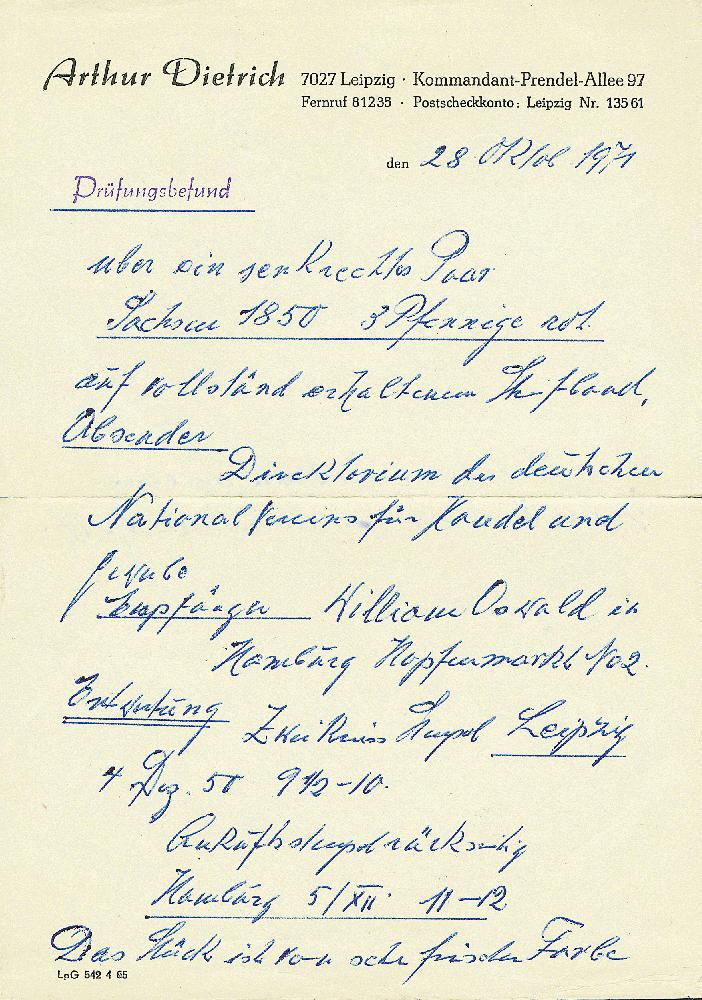 Arthur Dietrich 7027 Leipzig · Kommandant-Prendel-Allee 97
Fernruf 81238 · Postscheckkonto: Leipzig Nr. 13561
den 28 Oktob 1971
Prüfungsbefund
über ein senkrechtes Paar
Sachsen 1850 3 Pfennige rot.
auf vollständ erhaltenem
Absender
Direktorium des deutschen
National Vereins für Handel und
Gewerbe
Empfänger William Oswald in
Hamburg Hopfenmarkt No 2.
Entwertung Zweikreis Stempel Leipzig
4 Dez. 50 9½-10.
Ankunftstempel rückseitig
Hamburg 5/XII. 11-12
Das Stück ist von sehr frischer Farbe
LpG 542 4 65